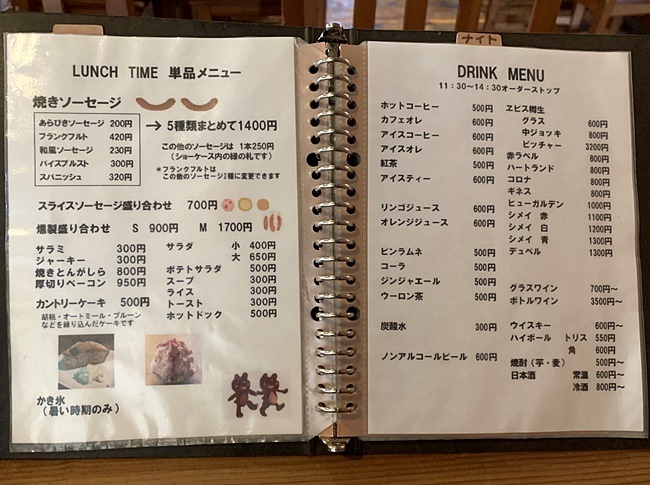 LUNCH TIME 単品メニュー
焼きソーセージ
あらびきソーセージ 200円
フランクフルト 420円
和風ソーセージ 230円
バイスブルスト 300円
スパニッシュ 320円
→ 5種類まとめて1400円
この他のソーセージは 1本250円
(ショーケース内の緑の札です)
*フランクフルトは
この他のソーセージ2種に変更できます
スライスソーセージ盛り合わせ 700円
燻製盛り合わせ S 900円 M 1700円
サラミ 300円
ジャーキー 300円
焼きとんがらし 800円
厚切りベーコン 950円
カントリーケーキ 500円
胡桃・オートミール・プルーン
などを練り込んだケーキです
サラダ 小 400円
大 650円
ポテトサラダ 500円
スープ 300円
ライス 300円
トースト 300円
ホットドック 500円
かき氷
(暑い時期のみ)
ナイト
DRINK MENU
11:30~14:30オーダーストップ
ホットコーヒー 500円
カフェオレ 600円
アイスコーヒー 600円
アイスオレ 600円
紅茶 500円
アイスティー 600円
リンゴジュース 600円
オレンジジュース 600円
ビンラムネ 500円
コーラ 500円
ジンジャエール 500円
ウーロン茶 500円
炭酸水 300円
ノンアルコールビール 600円
ヱビス樽生
グラス 600円
中ジョッキ 800円
ピッチャー 3200円
赤ラベル 800円
ハートランド 800円
コロナ 800円
ギネス 800円
ヒューガルデン 1000円
シメイ 赤 1100円
シメイ 白 1200円
シメイ 青 1300円
デュベル 1300円
グラスワイン 700円~
ボトルワイン 3500円~
ウイスキー 600円~
ハイボール トリス 550円
角 600円
焼酎(芋・麦) 500円~
日本酒 常温 600円~
冷酒 800円~